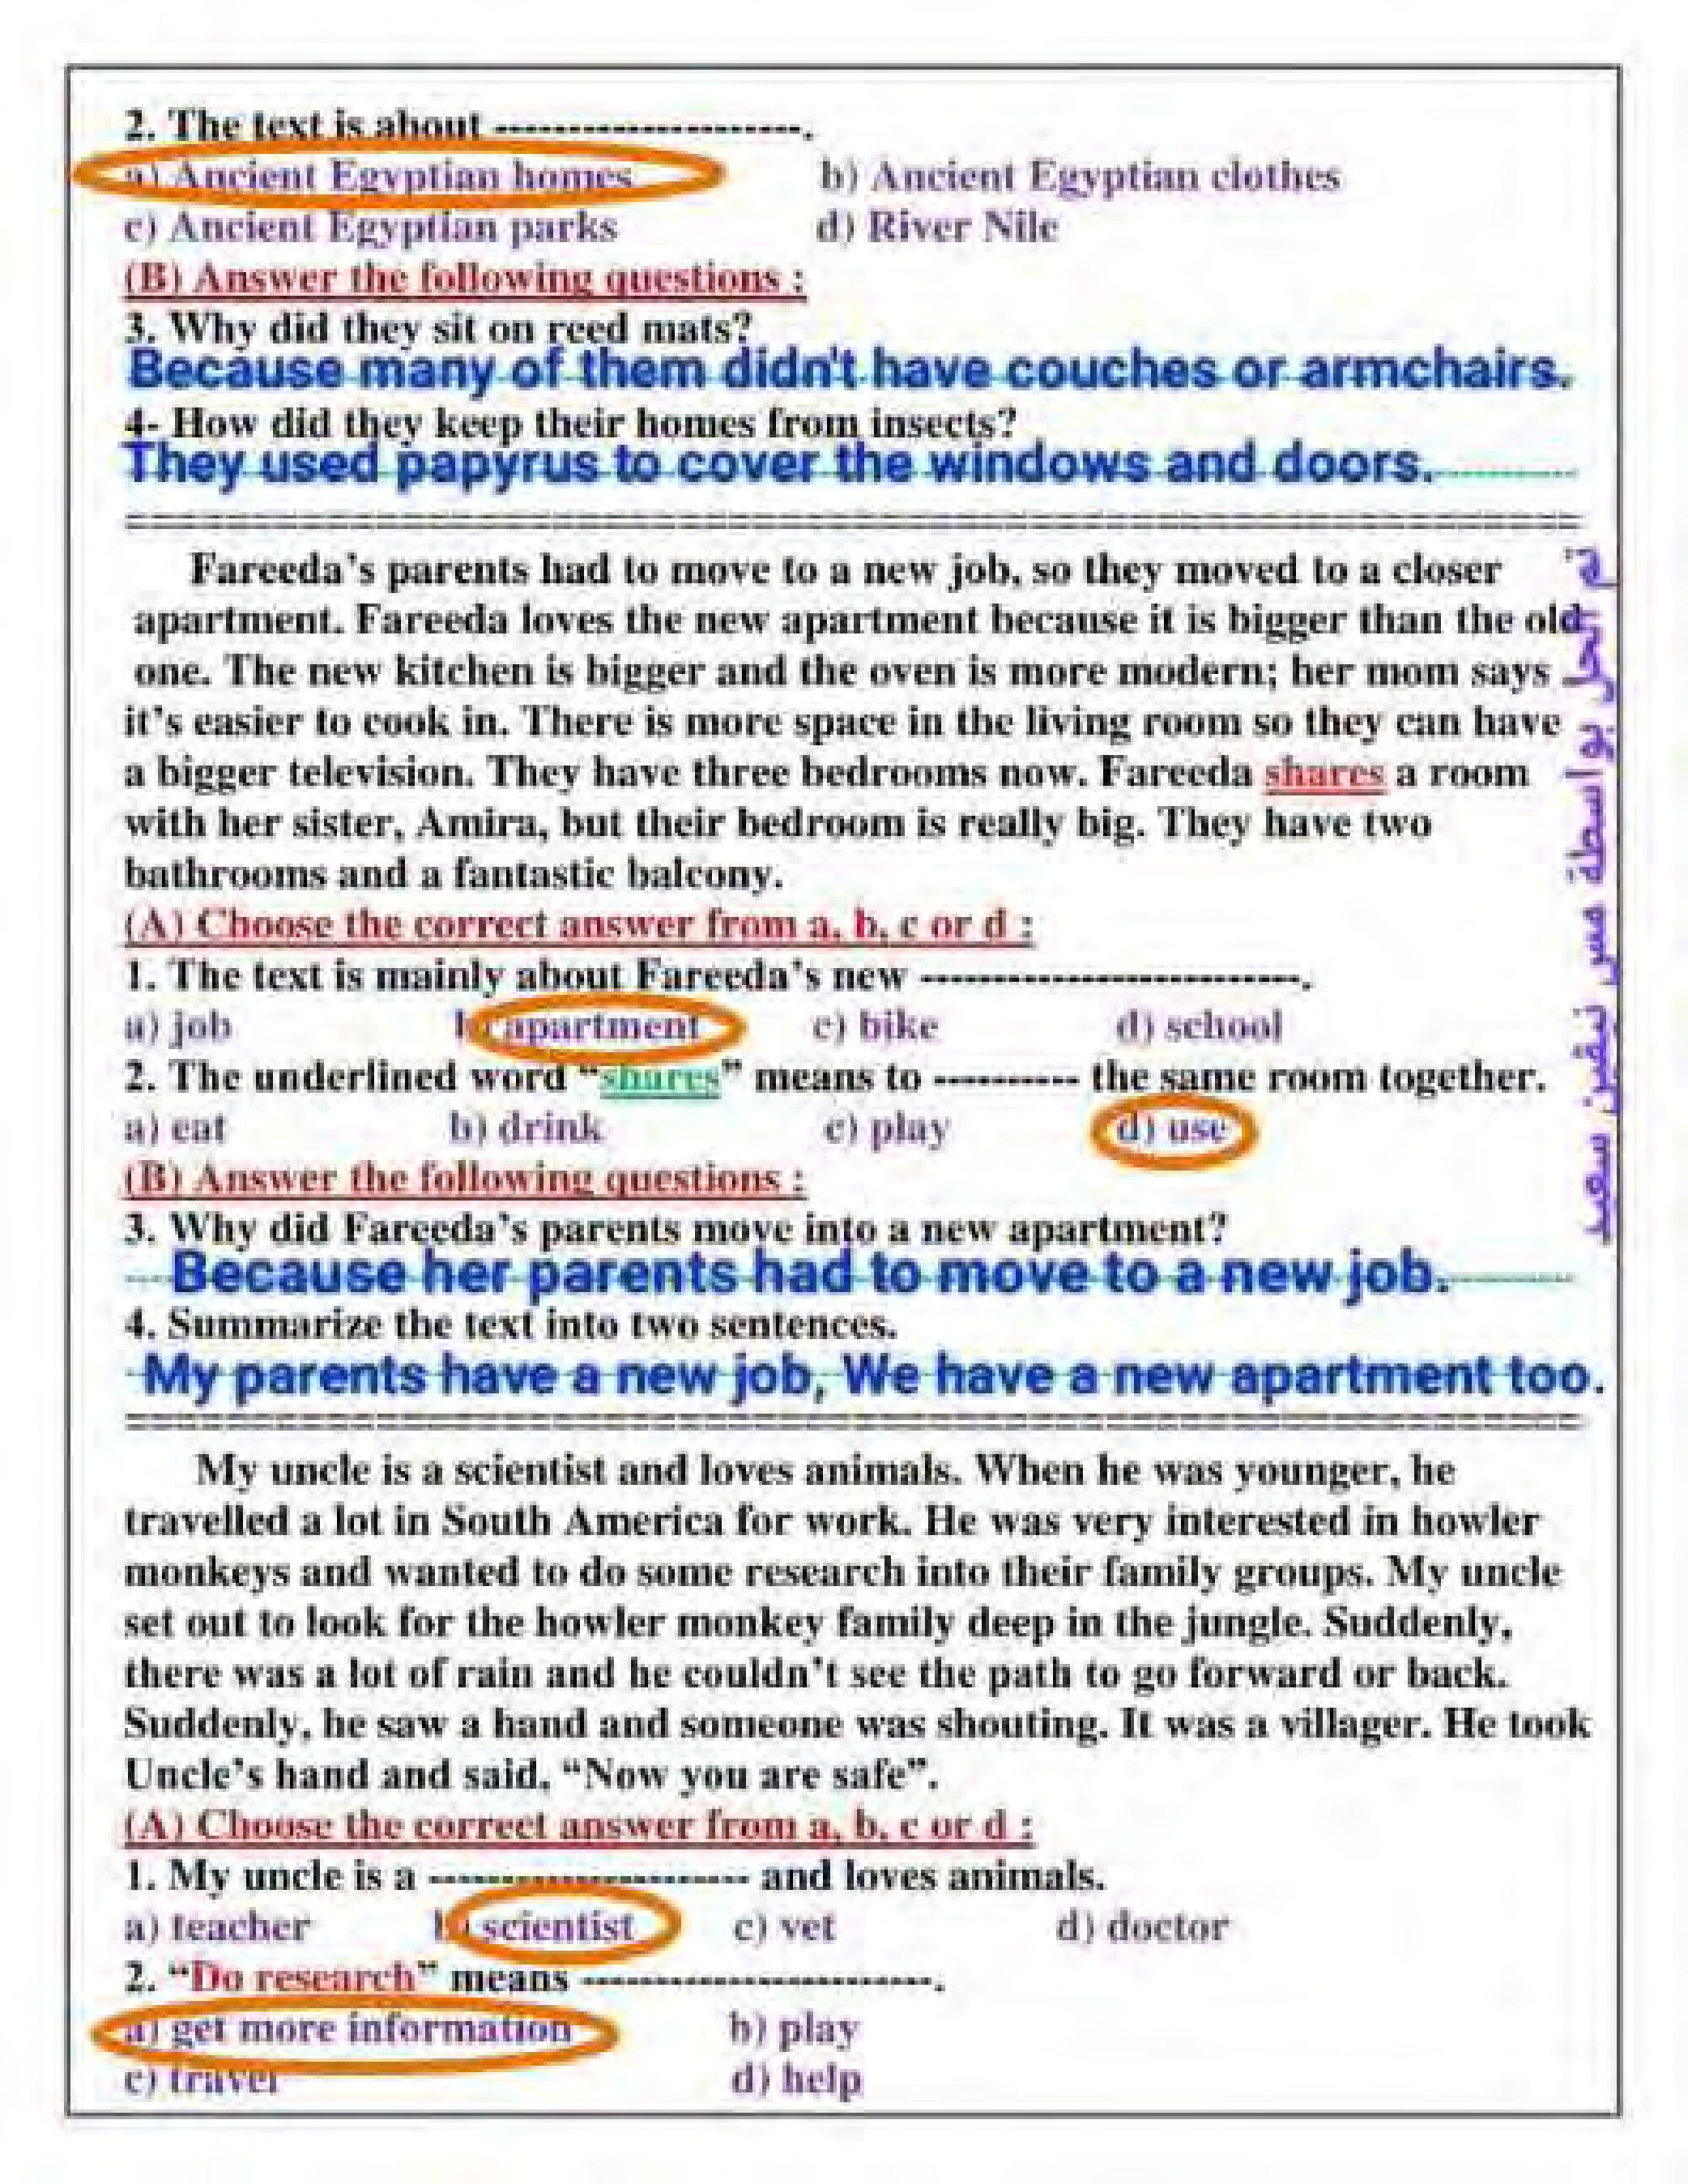 2. The text is about ---------------------.
a) Ancient Egyptian homes b) Ancient Egyptian clothes
c) Ancient Egyptian parks d) River Nile
(B) Answer the following questions :
3. Why did they sit on reed mats?
Because many of them didn't have couches or armchairs.
4- How did they keep their homes from insects?
They used papyrus to cover the windows and doors.
Fareeda's parents had to move to a new job, so they moved to a closer
apartment. Fareeda loves the new apartment because it is bigger than the old
one. The new kitchen is bigger and the oven is more modern; her mom says
it's easier to cook in. There is more space in the living room so they can have
a bigger television. They have three bedrooms now. Fareeda shares a room
with her sister, Amira, but their bedroom is really big. They have two
bathrooms and a fantastic balcony.
(A) Choose the correct answer from a, b, c or d :
1. The text is mainly about Fareeda's new --------------------------.
a) job b) apartment c) bike d) school
2. The underlined word "shares" means to ---------- the same room together.
a) eat b) drink c) play d) use
(B) Answer the following questions :
3. Why did Fareeda's parents move into a new apartment?
Because her parents had to move to a new job.
4. Summarize the text into two sentences.
My parents have a new job, We have a new apartment too.
My uncle is a scientist and loves animals. When he was younger, he
travelled a lot in South America for work. He was very interested in howler
monkeys and wanted to do some research into their family groups. My uncle
set out to look for the howler monkey family deep in the jungle. Suddenly,
there was a lot of rain and he couldn't see the path to go forward or back.
Suddenly, he saw a hand and someone was shouting. It was a villager. He took
Uncle's hand and said, "Now you are safe".
(A) Choose the correct answer from a, b, c or d :
1. My uncle is a ---------------------- and loves animals.
a) teacher b) scientist c) vet d) doctor
2. "Do research" means ------------------------.
a) get more information b) play
c) travel d) help
تم الحل بواسطة مس نيفين سعيد